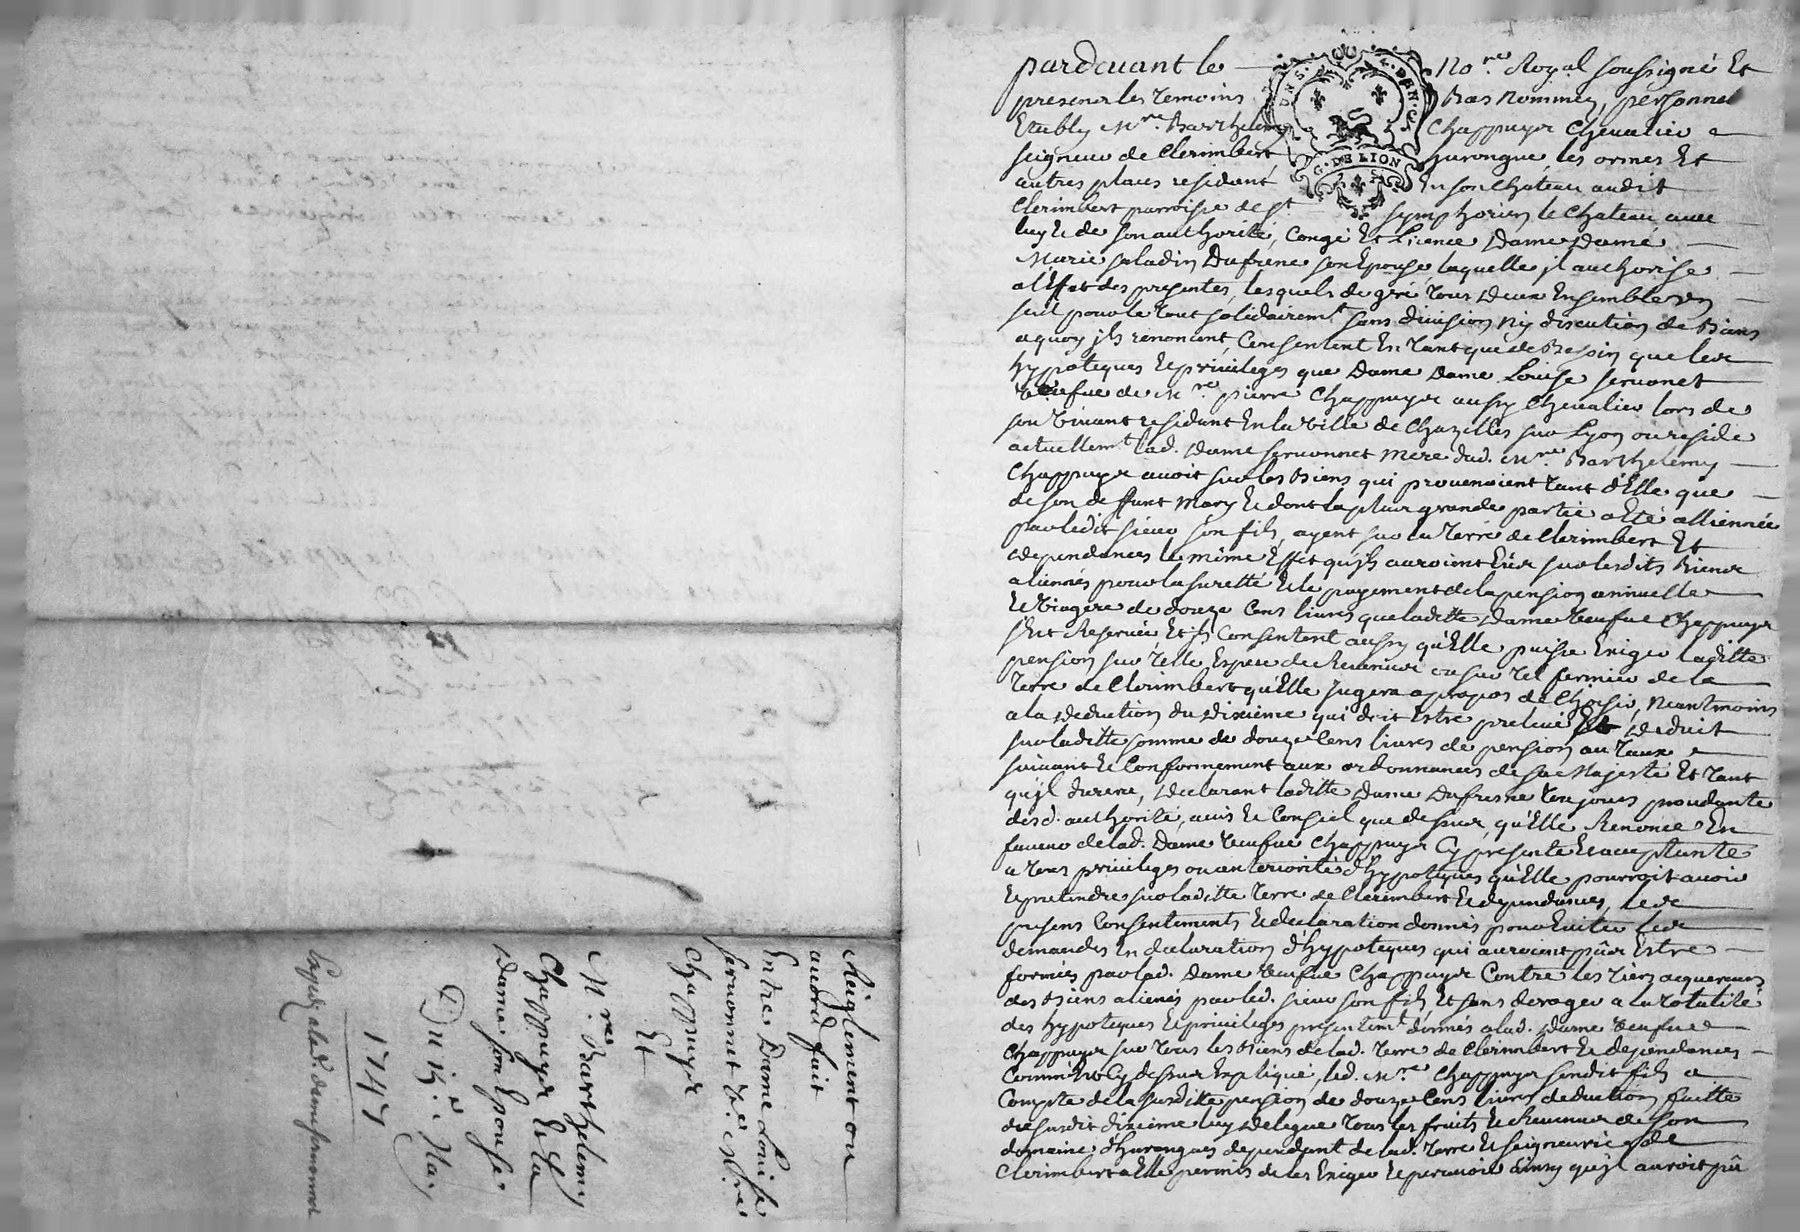 pardevant le No.re Royal soussigné Et
presence les temoins Bas Nommez, personnel
Etably M.re Barthelemy Chappuys Chevalier
seigneur de Clerimbert hurongue, les ormes Et
autres places residant En son Chateau audit
Clerimbert parroisse de St symphorien le Chateau avec
luy Et de son authorité, Congé Et Licence Dame Dame
Marie saladin Dufrene son Epouse laquelle jl authorise
a l'Effet des presentes, lesquels de gré tous Deux Ensemble un
seul pour le tout solidairemt sans division Ny discution de Biens
a quoy jls renoncent, Consentent En tant que de Besoin que les
hypoteques Et privileges que Dame Dame Louise servonet
veufve de M.re pierre Chappuys aussy Chevalier lors de
son vivant residant En la ville de Chazelles sur Lyon ou reside
actuellemt lad. Dame servonnet mere dud. M.re Barthelemy
Chappuys avoit sur les Biens qui provenoient tant d'Elle que
de son deffunt Mary Et dont la plus grande partie a Eté alliennée
par ledit sieur son fils, ayent sur la terre de Clerimbert Et
dependances le même Effet qu'jls auroient Eüs sur lesdits Biens
alienés pour la sureté Et le payement de la pension annuelle
Et Viagere de douze Cens livres que laditte Dame veufve Chappuys
s'Est Reservée Et jls Consentent aussy qu'Elle puisse Exiger laditte
pension sur telle Espece de Revenus ou sur tel fermier de la
terre de Clerimbert qu'Elle jugera apropos de Choisir, Neantmoins
a la Deduction du Dixieme qui doit Estre prelevé Et Deduit
sur laditte somme de douze Cens livres de pension au taux
suivant Et Conformement aux ordonnances de sa Majesté Et tant
qu'jl durera, Declarant laditte Dame Dufresne toujours procedante
desd. authorité, avis Et Conseil que dessus, qu'Elle Renonce En
faveur de lad. Dame veufve Chappuys Cy presente Et acceptante
a tous privileges ou anteriorité d'hypoteques qu'Elle pourroit avoir
Et pretendre sur laditte terre de Clerimbert Et dependances, les
presens Consentements Et declaration donnés pour Eviter les
demandes En declaration d'hypoteques qui auroient pûes Estre
formées par lad. Dame veufve Chappuys Contre les tiers acquereurs
des Biens alienés par led. sieur son fils Et sans deroger a la totalité
des hypoteques Et privileges presentemt donnés a lad. Dame veufve
Chappuys sur tous les Biens de lad. terre de Clerimbert Et dependances
Comme Est Cy dessus Expliqué, led. M.re Chappuys sondit fils a
Compte de la susditte pension de douze Cens livres deduction faitte
du susdit dixieme luy Delegue tous les fruits Et Revenus de son
domaine d'hurongues dependant de lad. terre Et seigneurie de
Clerimbert a Elle permis de les Exiger Et percevoir ainsy qu'jl auroit pû
Reiglement ou
accord fait
Entre Dame Louise
servonnet Ve. de M.re
Chappuys
Et
M.re Barthelemy
Chappuys Et la
Dame son Epouse
Du May
1747